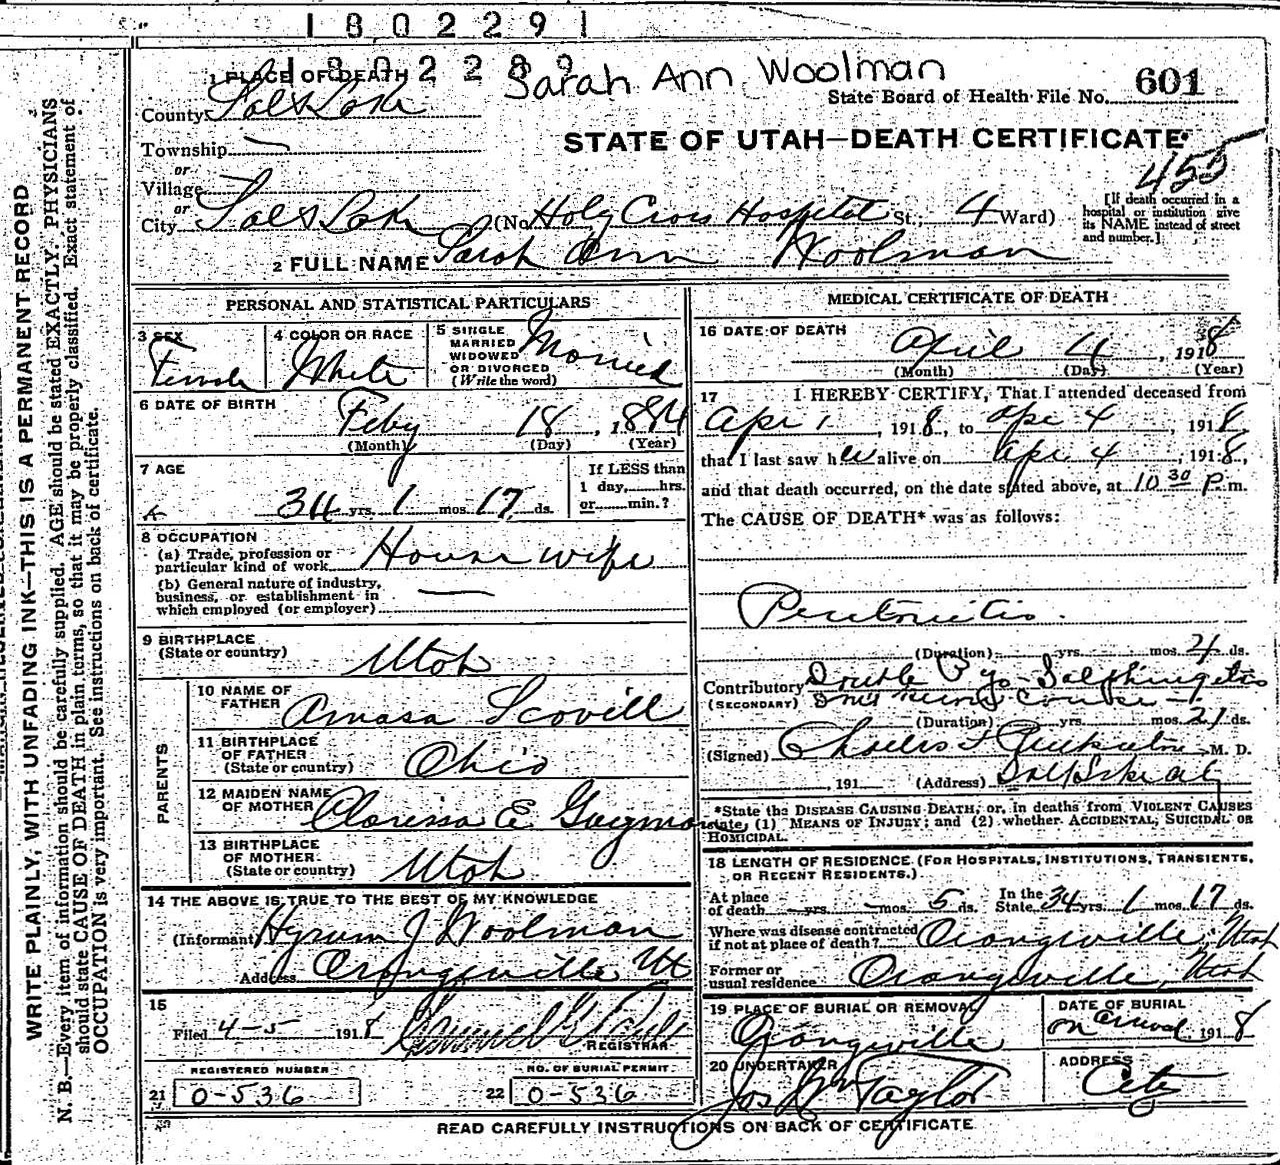 1802291
1802289
Sarah Ann Woolman
1 PLACE OF DEATH
State Board of Health File No. 601
County Salt Lake
STATE OF UTAH—DEATH CERTIFICATE
Township —
455
or
Village —
or
City Salt Lake (No. Holy Cross Hospital St.; 4 Ward)
[If death occurred in a hospital or institution give its NAME instead of street and number.]
2 FULL NAME Sarah Ann Woolman
PERSONAL AND STATISTICAL PARTICULARS
3 SEX Female
4 COLOR OR RACE White
5 SINGLE MARRIED WIDOWED OR DIVORCED (Write the word) Married
6 DATE OF BIRTH Feby 18, 1884
(Month) (Day) (Year)
7 AGE 34 yrs. 1 mos. 17 ds.
If LESS than 1 day, hrs. or min.?
8 OCCUPATION
(a) Trade, profession or particular kind of work House wife
(b) General nature of industry, business, or establishment in which employed (or employer) —
9 BIRTHPLACE (State or country) Utah
PARENTS
10 NAME OF FATHER Amasa Scovill
11 BIRTHPLACE OF FATHER (State or country) Ohio
12 MAIDEN NAME OF MOTHER Clarissa E. Guymon
13 BIRTHPLACE OF MOTHER (State or country) Utah
14 THE ABOVE IS TRUE TO THE BEST OF MY KNOWLEDGE
(Informant Hyrum J Woolman
Address Orangeville Ut
15
Filed 4-5 1918
REGISTRAR
REGISTERED NUMBER
21 0-536
NO. OF BURIAL PERMIT
22 0-536
MEDICAL CERTIFICATE OF DEATH
16 DATE OF DEATH April 4, 1918
(Month) (Day) (Year)
17 I HEREBY CERTIFY, That I attended deceased from
Apr 1, 1918, to Apr 4, 1918,
that I last saw her alive on Apr 4, 1918,
and that death occurred, on the date stated above, at 10 30 P.m.
The CAUSE OF DEATH* was as follows:
Peritonitis
(Duration) yrs. mos. 21 ds.
Contributory Double Pyo Salphingitis
(SECONDARY)
(Duration) yrs. mos. 21 ds.
(Signed) Charles F M. D.
, 191 (Address)
*State the DISEASE CAUSING DEATH; or, in deaths from VIOLENT CAUSES
state (1) MEANS OF INJURY; and (2) whether ACCIDENTAL, SUICIDAL OR
HOMICIDAL.
18 LENGTH OF RESIDENCE (FOR HOSPITALS, INSTITUTIONS, TRANSIENTS,
OR RECENT RESIDENTS.)
At place of death - yrs. - mos. 5 ds. In the State 34 yrs. 1 mos. 17 ds.
Where was disease contracted if not at place of death? Orangeville, Utah
Former or usual residence Orangeville, Utah
19 PLACE OF BURIAL OR REMOVAL Orangeville
DATE OF BURIAL on arrival 1918
20 UNDERTAKER Jos Wm Taylor
ADDRESS City
READ CAREFULLY INSTRUCTIONS ON BACK OF CERTIFICATE
WRITE PLAINLY, WITH UNFADING INK—THIS IS A PERMANENT RECORD
N. B.—Every item of information should be carefully supplied. AGE should be stated EXACTLY. PHYSICIANS
should state CAUSE OF DEATH in plain terms, so that it may be properly classified. Exact statement of
OCCUPATION is very important. See instructions on back of certificate.